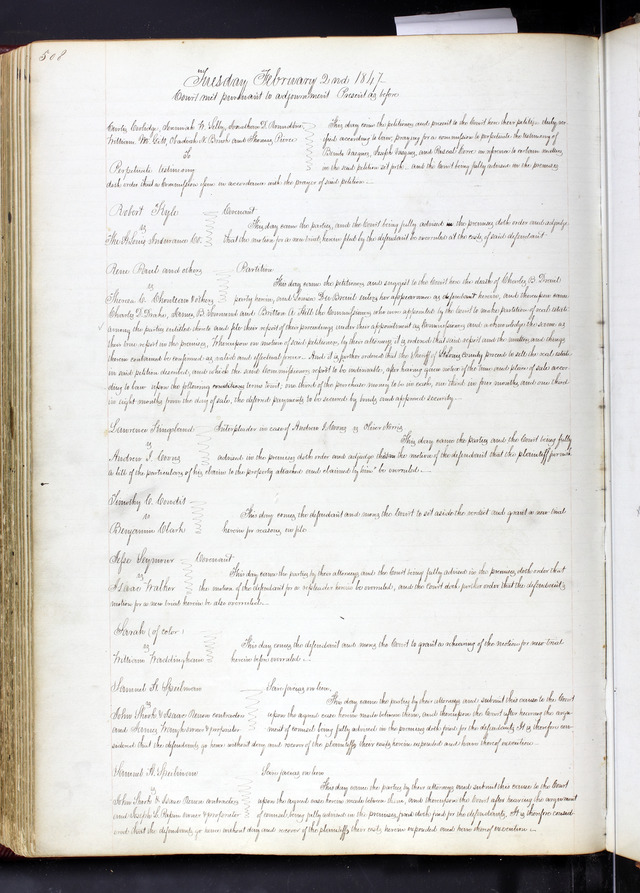 508
Tuesday February 2nd 1847
Court met pursuant to adjournment Present as before
William
This day came the petitioners and present to the Court here their petition duly
according to law, praying for a commission to perpetuate the testimony of
in the said petition set forth, and the Court being fully advised in the premises
To
Perpetuate testimony
doth order that a Commission issue in accordance with the prayer of said petition
Robert Kyle
Covenant
vs
The St Louis Insurance Co.
This day came the parties, and the Court being fully advised in the premises doth order and adjudge
that the motion for a new trial herein filed by the defendant be overruled at the costs of said defendant
Rene Paul and others
Partition
vs
Theresa C. Chouteau & others
This day came the petitioners and suggest to the Court here the death of Charles B.
party herein, and enters her appearance as defendant herein, and thereupon came
Charles D. Drake, James B. Townsend and Britton A. Hill the Commissioners who were appointed by the Court to make partition of real estate
among the parties entitled thereto and file their report of their proceedings under their appointment as Commissioners and acknowledge the same as
their own report in the premises, Whereupon on motion of said petitioners, by their attorney it is ordered that said report and the matters and things
therein contained be confirmed as valid and effectual forever. And it is further ordered that the Sheriff of St Louis County proceed to sell the real estate
in said petition described, and which the said Commissioners report to be undivisible, after having given notice of the time and place of sale
ding to law upon the following terms to wit; one third of the purchase money to be in cash, one third in four months and one third
in eight months from the day of sale, the deferred payments to be secured by bonds and approved security
Lawrence
Interpleader in case of Andrew J. vs Oliver
vs
Andrew J.
This day came the parties and the Court being fully
advised in the premises doth order and adjudge that the motion of the defendant that the plaintiff
a bill of the particulars of his claim to the property attached and claimed by him be overruled
Timothy C. Condit
vs
Benjamin Clark
This day comes the defendant and moves the Court to set aside the verdict and grant a new trial
herein for reasons on file
Jesse Seymour
Covenant
vs
Isaac Walker
This day came the parties by their attorneys and the Court being fully advised in the premises, doth order that
the motion of the defendant for a repleader herein be overruled, and the Court doth further order that the defendant's
motion for a new trial herein be also overruled
Sarah (of color)
vs
William Waddingham
This day comes the defendant and moves the Court to grant a rehearing of the motion for new trial
herein before overruled
Samuel H. Speelman
Scire facias on lien
vs
John Shook & Isaac Rerson contractors
and James owner & proprietor
This day came the parties by their attorneys and submit this cause to the Court
upon the agreed case herein made between them, and thereupon the Court after hearing the argu
ment of counsel being fully advised in the premises doth find for the defendants, It is therefore con
sidered that the defendants go hence without day and recover of the plaintiff their costs herein expended and have thereof execution
Samuel H. Speelman
Scire facias on lien
vs
John Shook & Isaac Rerson contractors
and Joseph L. Papin owner & proprietor
This day came the parties by their attorneys and submit this cause to the Court
upon the agreed case herein made between them, and thereupon the Court after hearing the argument
of counsel being fully advised in the premises, doth find for the defendants, It is therefore consid
ered that the defendants go hence without day and recover of the plaintiff their costs herein expended and have thereof execution